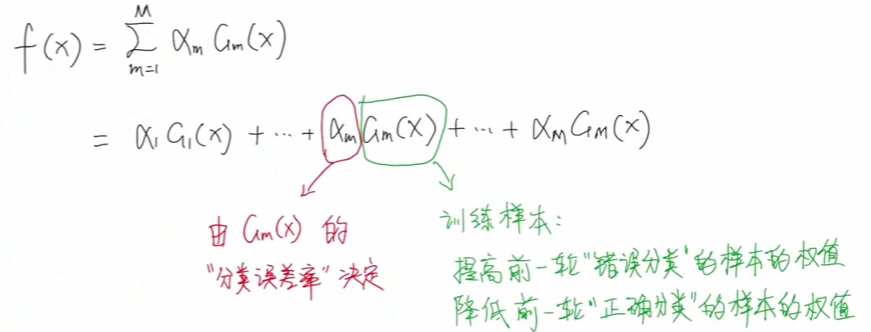 f(x) = \sum_{m=1}^{M} α_m G_m(x)
= α_1 G_1(x) + ⋯ + α_m G_m(x) + ⋯ + α_M G_M(x)
由 G_m(x) 的
“分类误差率”决定
训练样本:
提高前一轮“错误分类”的样本的权值
降低前一轮“正确分类”的样本的权值